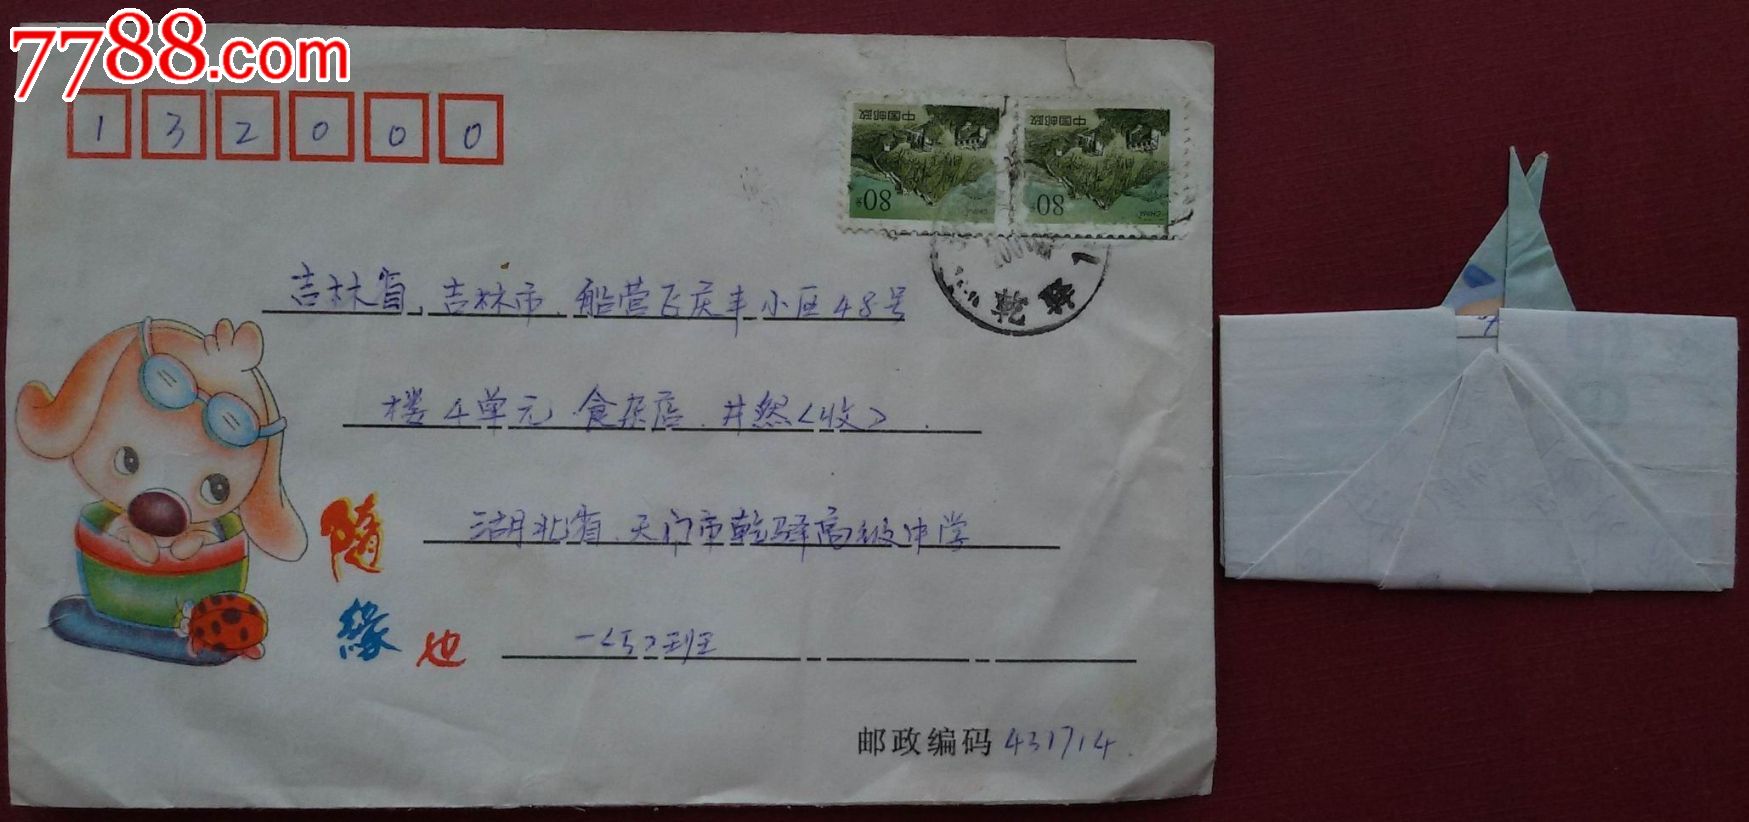 7788.com
132000
中国邮政 中国邮政
80分 CHINA 80分 CHINA
吉林省,吉林市,船营飞庆丰小区48号
楼4单元 食杂店.井然<收>.
湖北省.天门市乾驿高级中学
一<5>班
隨緣也
邮政编码 431714.